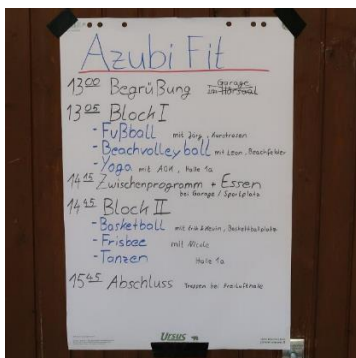 Azubi Fit
13 00 Begrüßung Garage
im Hörsaal
13 05 Block I
- Fußball mit Jörg, Kunstrasen
- Beachvolleyball mit Leon, Beachfelder
- Yoga mit AOK, Halle 1a
14 15 Zwischenprogramm + Essen
bei Garage / Sportplatz
14 45 Block II
- Basketball mit Erik & Kevin, Basketballplatz
- Frisbee mit Nicole
- Tanzen Halle 1a
15 45 Abschluss Treffen bei Freilufthalle
URSUS